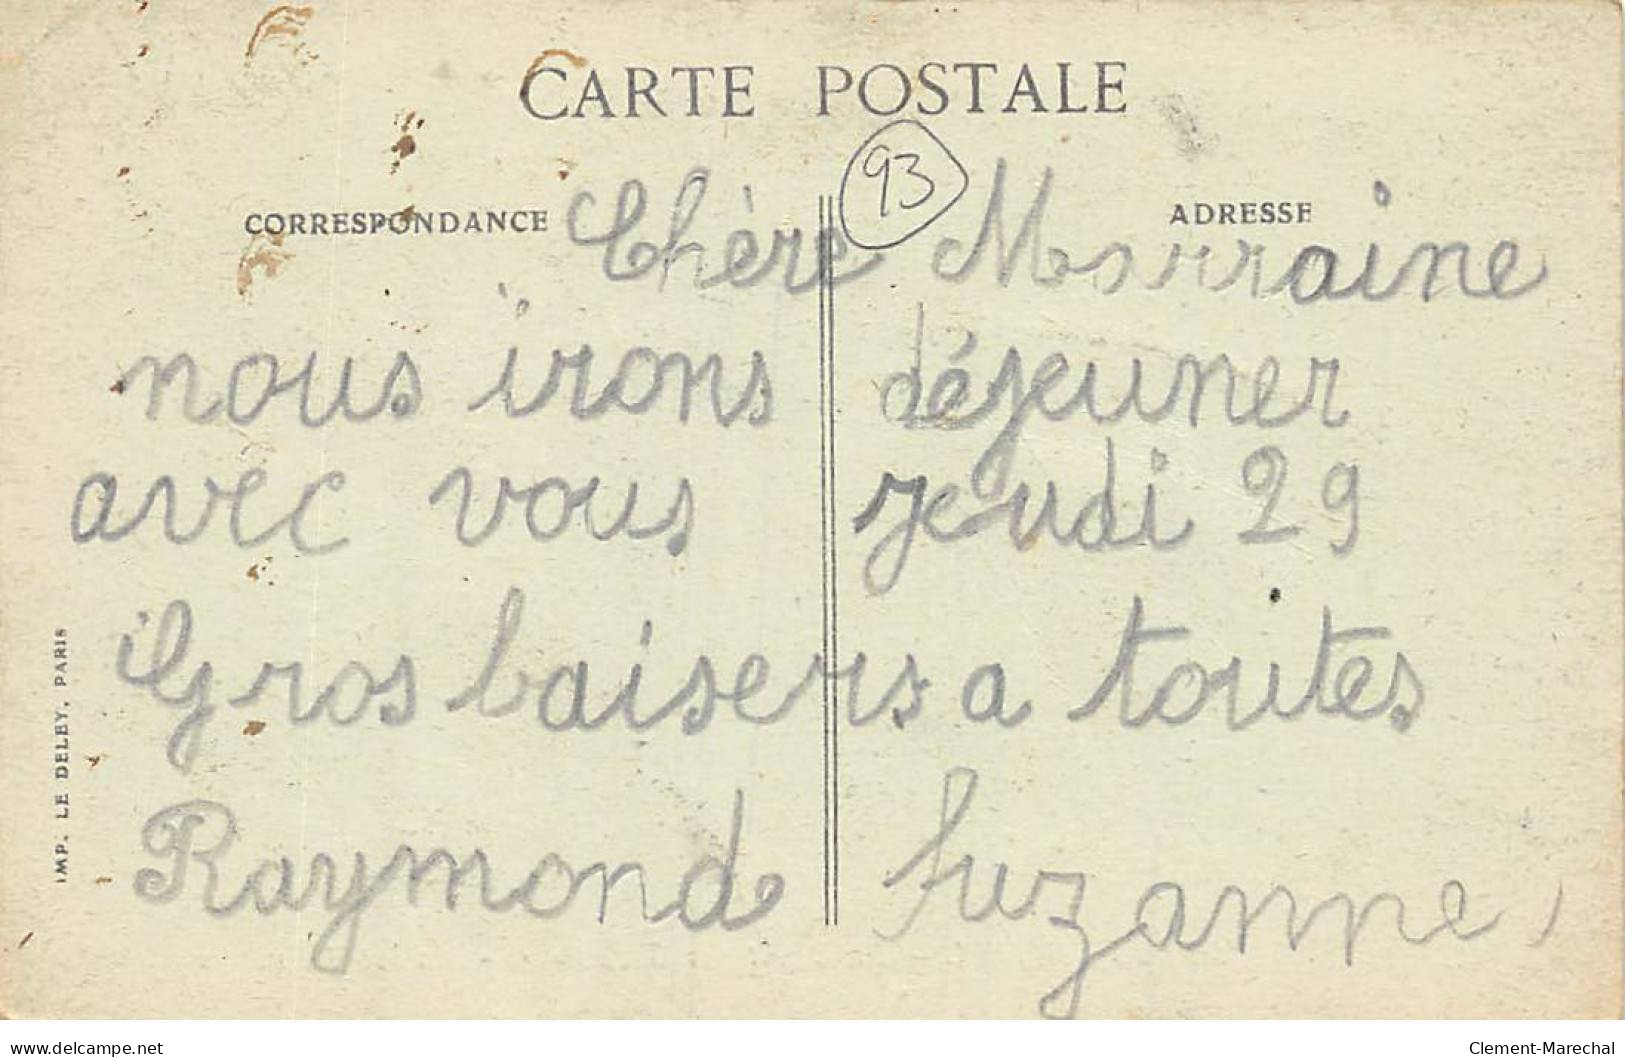 CARTE POSTALE
93
CORRESPONDANCE
ADRESSE
Chère Marraine
nous irons déjeuner
avec vous jeudi 29
Gros baisers a toutes
Raymond Suzanne,
IMP. LE DELEY, PARIS
www.delcampe.net
Clement-Marechal